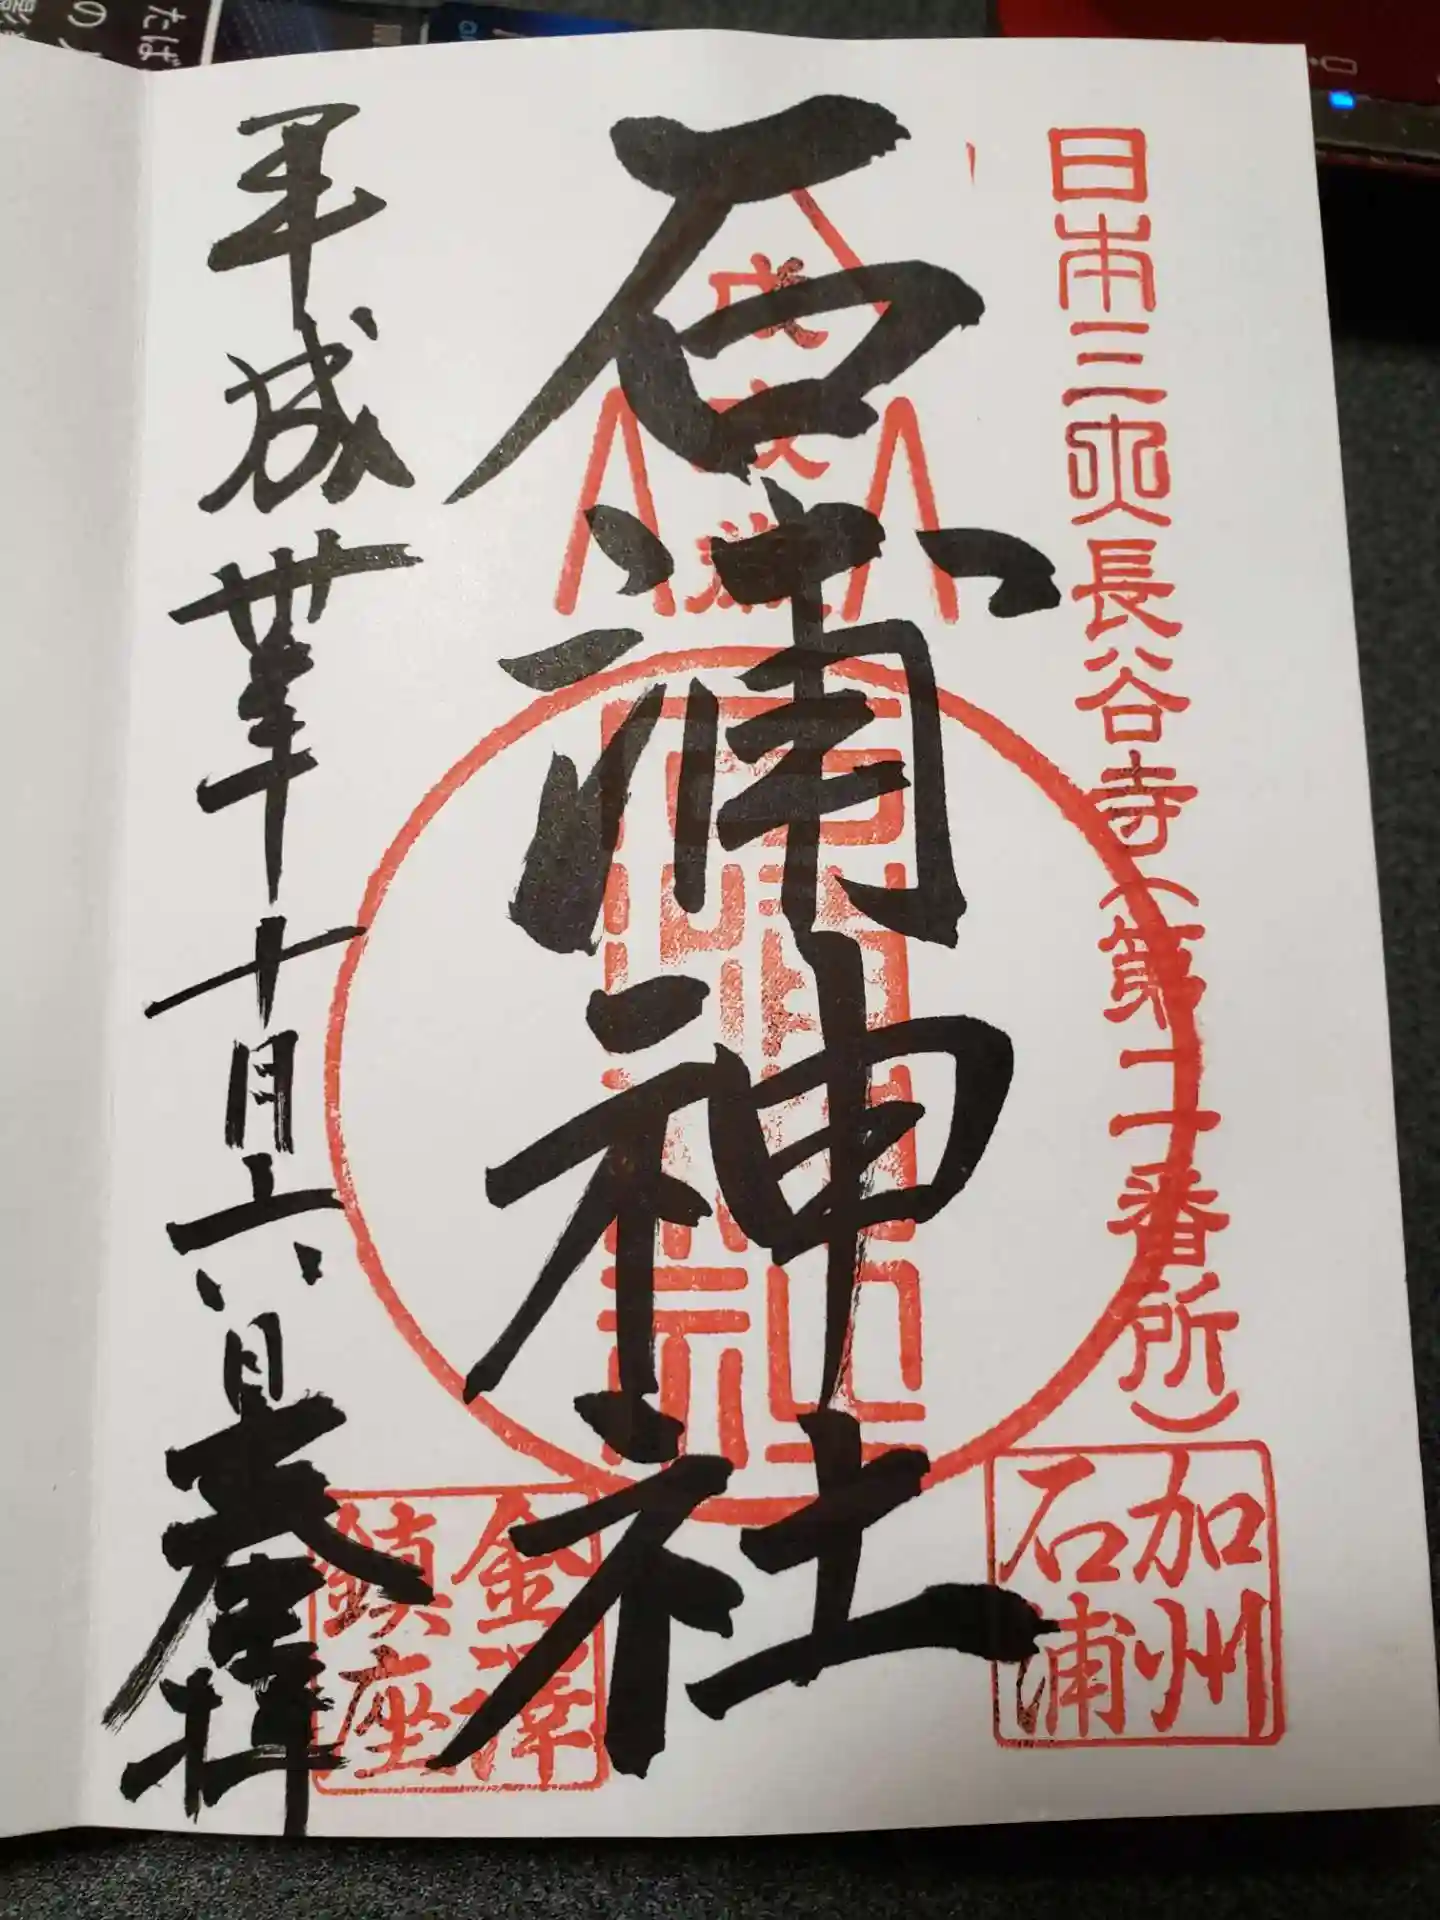 たば
の
日本三大長谷寺(第二番所)
加州
石浦
石浦神社
平成丗年十月十六日奉拝
金澤
鎮座